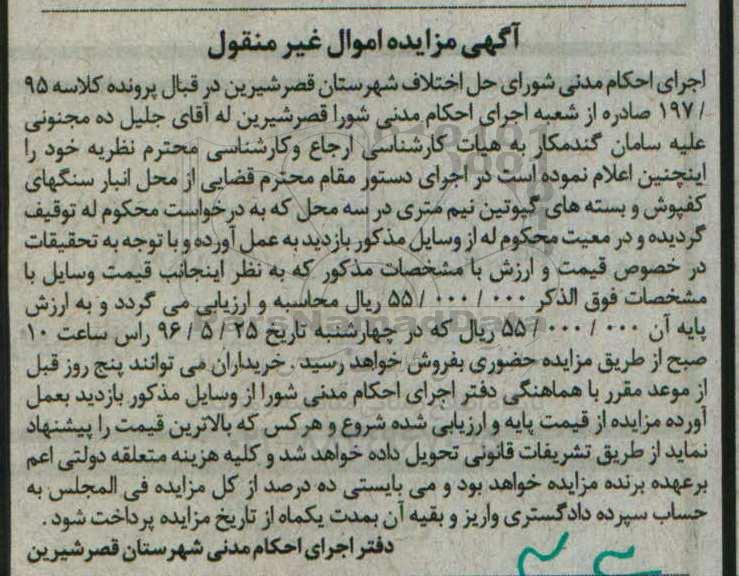 آگهی مزایده اموال غیر منقول
اجرای احکام مدنی شورای حل اختلاف شهرستان قصرشیرین در قبال پرونده کلاسه ۹۵
/ ۱۹۷ صادره از شعبه اجرای احکام مدنی شورا قصرشیرین له آقای جلیل ده مجنونی
علیه سامان گندمکار به هیات کارشناسی ارجاع وکارشناسی محترم نظریه خود را
اینچنین اعلام نموده است در اجرای دستور مقام محترم قضایی از محل انبار سنگهای
کفپوش و بسته های گیوتین نیم متری در سه محل که به درخواست محکوم له توقیف
گردیده و در معیت محکوم له از وسایل مذکور بازدید به عمل آورده و با توجه به تحقیقات
در خصوص قیمت و ارزش با مشخصات مذکور که به نظر اینجانب قیمت وسایل با
مشخصات فوق الذکر ۰۰۰ / ۰۰۰ / ۵۵ ریال محاسبه و ارزیابی می گردد و به ارزش
پایه آن ۰۰۰ / ۰۰۰ / ۵۵ ریال که در چهارشنبه تاریخ ۲۵ / ۵ / ۹۶ راس ساعت ۱۰
صبح از طریق مزایده حضوری بفروش خواهد رسید . خریداران می توانند پنج روز قبل
از موعد مقرر با هماهنگی دفتر اجرای احکام مدنی شورا از وسایل مذکور بازدید بعمل
آورده مزایده از قیمت پایه و ارزیابی شده شروع و هرکس که بالاترین قیمت را پیشنهاد
نماید از طریق تشریفات قانونی تحویل داده خواهد شد و کلیه هزینه متعلقه دولتی اعم
برعهده برنده مزایده خواهد بود و می بایستی ده درصد از کل مزایده فی المجلس به
حساب سپرده دادگستری واریز و بقیه آن بمدت یکماه از تاریخ مزایده پرداخت شود .
دفتر اجرای احکام مدنی شهرستان قصرشیرین
ParsNamadData